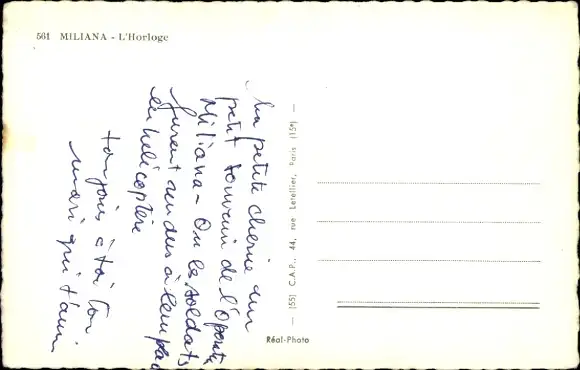 561 MILIANA - L'Horloge
Ma petite cherie un
petit souvenir de l'
Miliana - Ou les soldats
furent rendus à
en helicoptère
toujours à toi ton
mari qui t'aime
(55) C.A.P., 44, rue Letellier, Paris (15e)
Réal-Photo